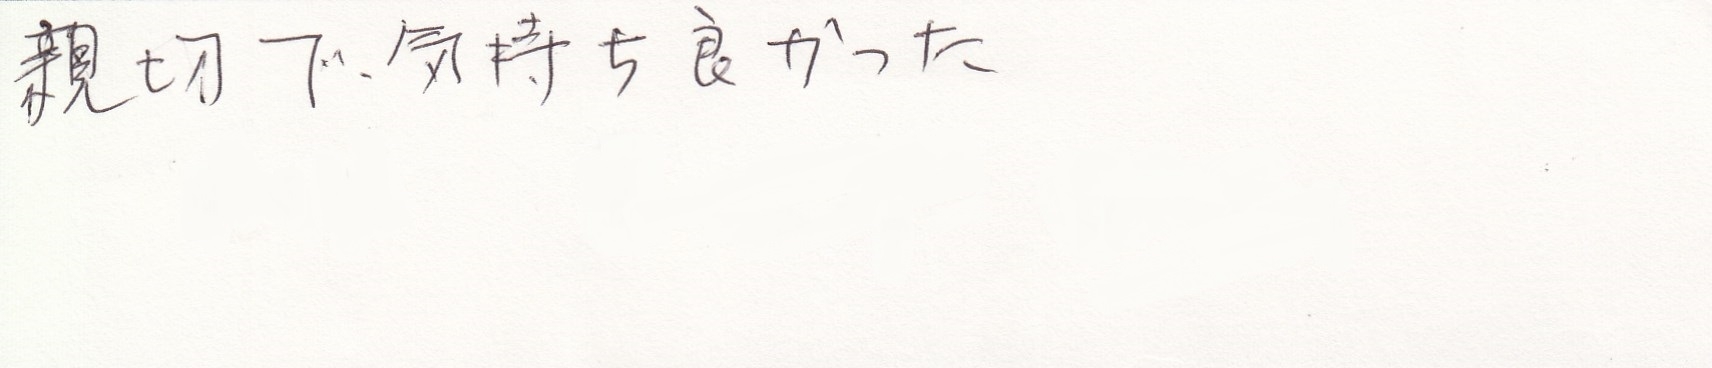 親切で、気持ち良かった